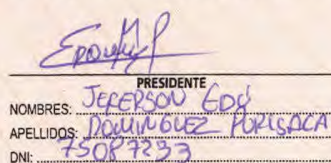 PRESIDENTE
NOMBRES: JEFERSON EDY
APELLIDOS: DOMINGUEZ PURISACA
DNI: 75087233